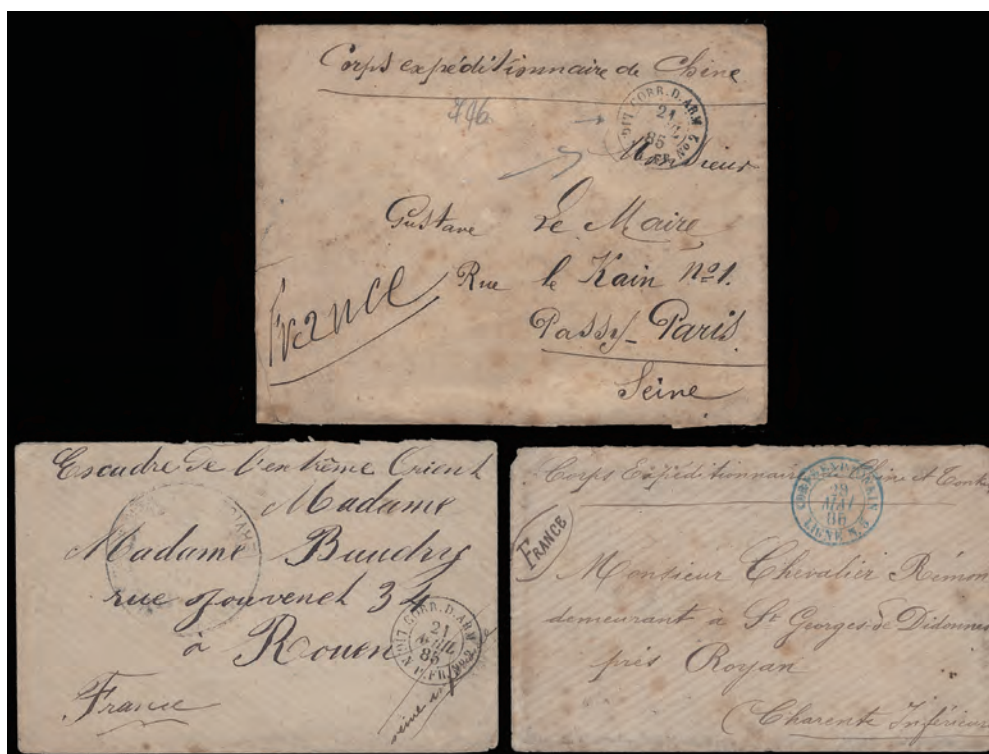 Corps expéditionnaire de Chine
CORR. D. ARM.
21
85
Monsieur
Gustave Le Maire
Rue le Kain nº1.
France
Passy-Paris
Seine
Escadre de l'extrême Orient
Madame
Madame Baudry
rue Jouvenet 34
à Rouen
France
CORR. D. ARM.
21
JUIL.
85
Corps Expéditionnaire de Chine et Tonk
LIGNE N.
28
MAI
86
FRANCE
Monsieur Chevalier Rémon
demeurant à St Georges de Didonne
près Royan
(Charente Inférieur